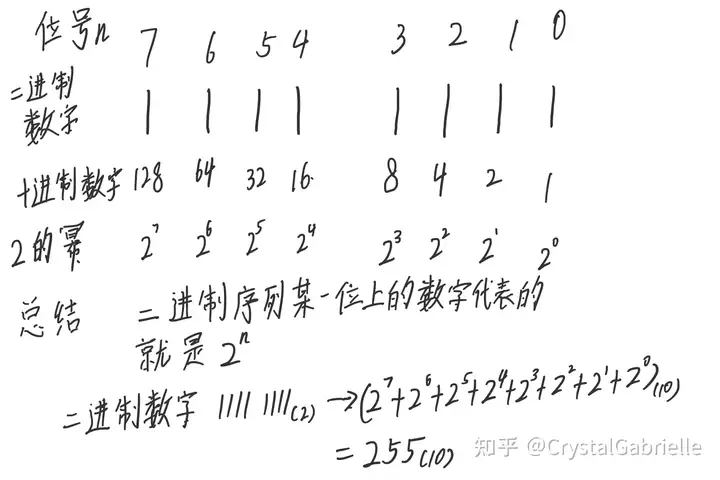 位号n 7 6 5 4 3 2 1 0
二进制
数字 1 1 1 1 1 1 1 1
十进制数字 128 64 32 16 8 4 2 1
2的幂 2⁷ 2⁶ 2⁵ 2⁴ 2³ 2² 2¹ 2⁰
总结 二进制序列某一位上的数字代表的
就是 2ⁿ
二进制数字 1111 1111(2) → (2⁷+2⁶+2⁵+2⁴+2³+2²+2¹+2⁰)(10)
= 255(10)
知乎 @CrystalGabrielle